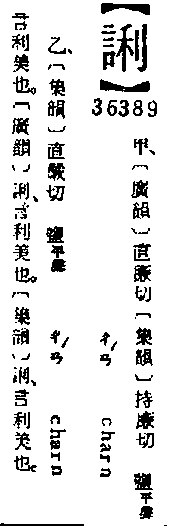 【誗】
36389
甲、〔廣韻〕直廉切〔集韻〕持廉切 鹽平聲
ㄔㄢˊ charn
乙、〔集韻〕直嚴切 鹽平聲
ㄔㄢˊ charn
言利美也。〔廣韻〕誗、言利美也。〔集韻〕誗、言利美也。